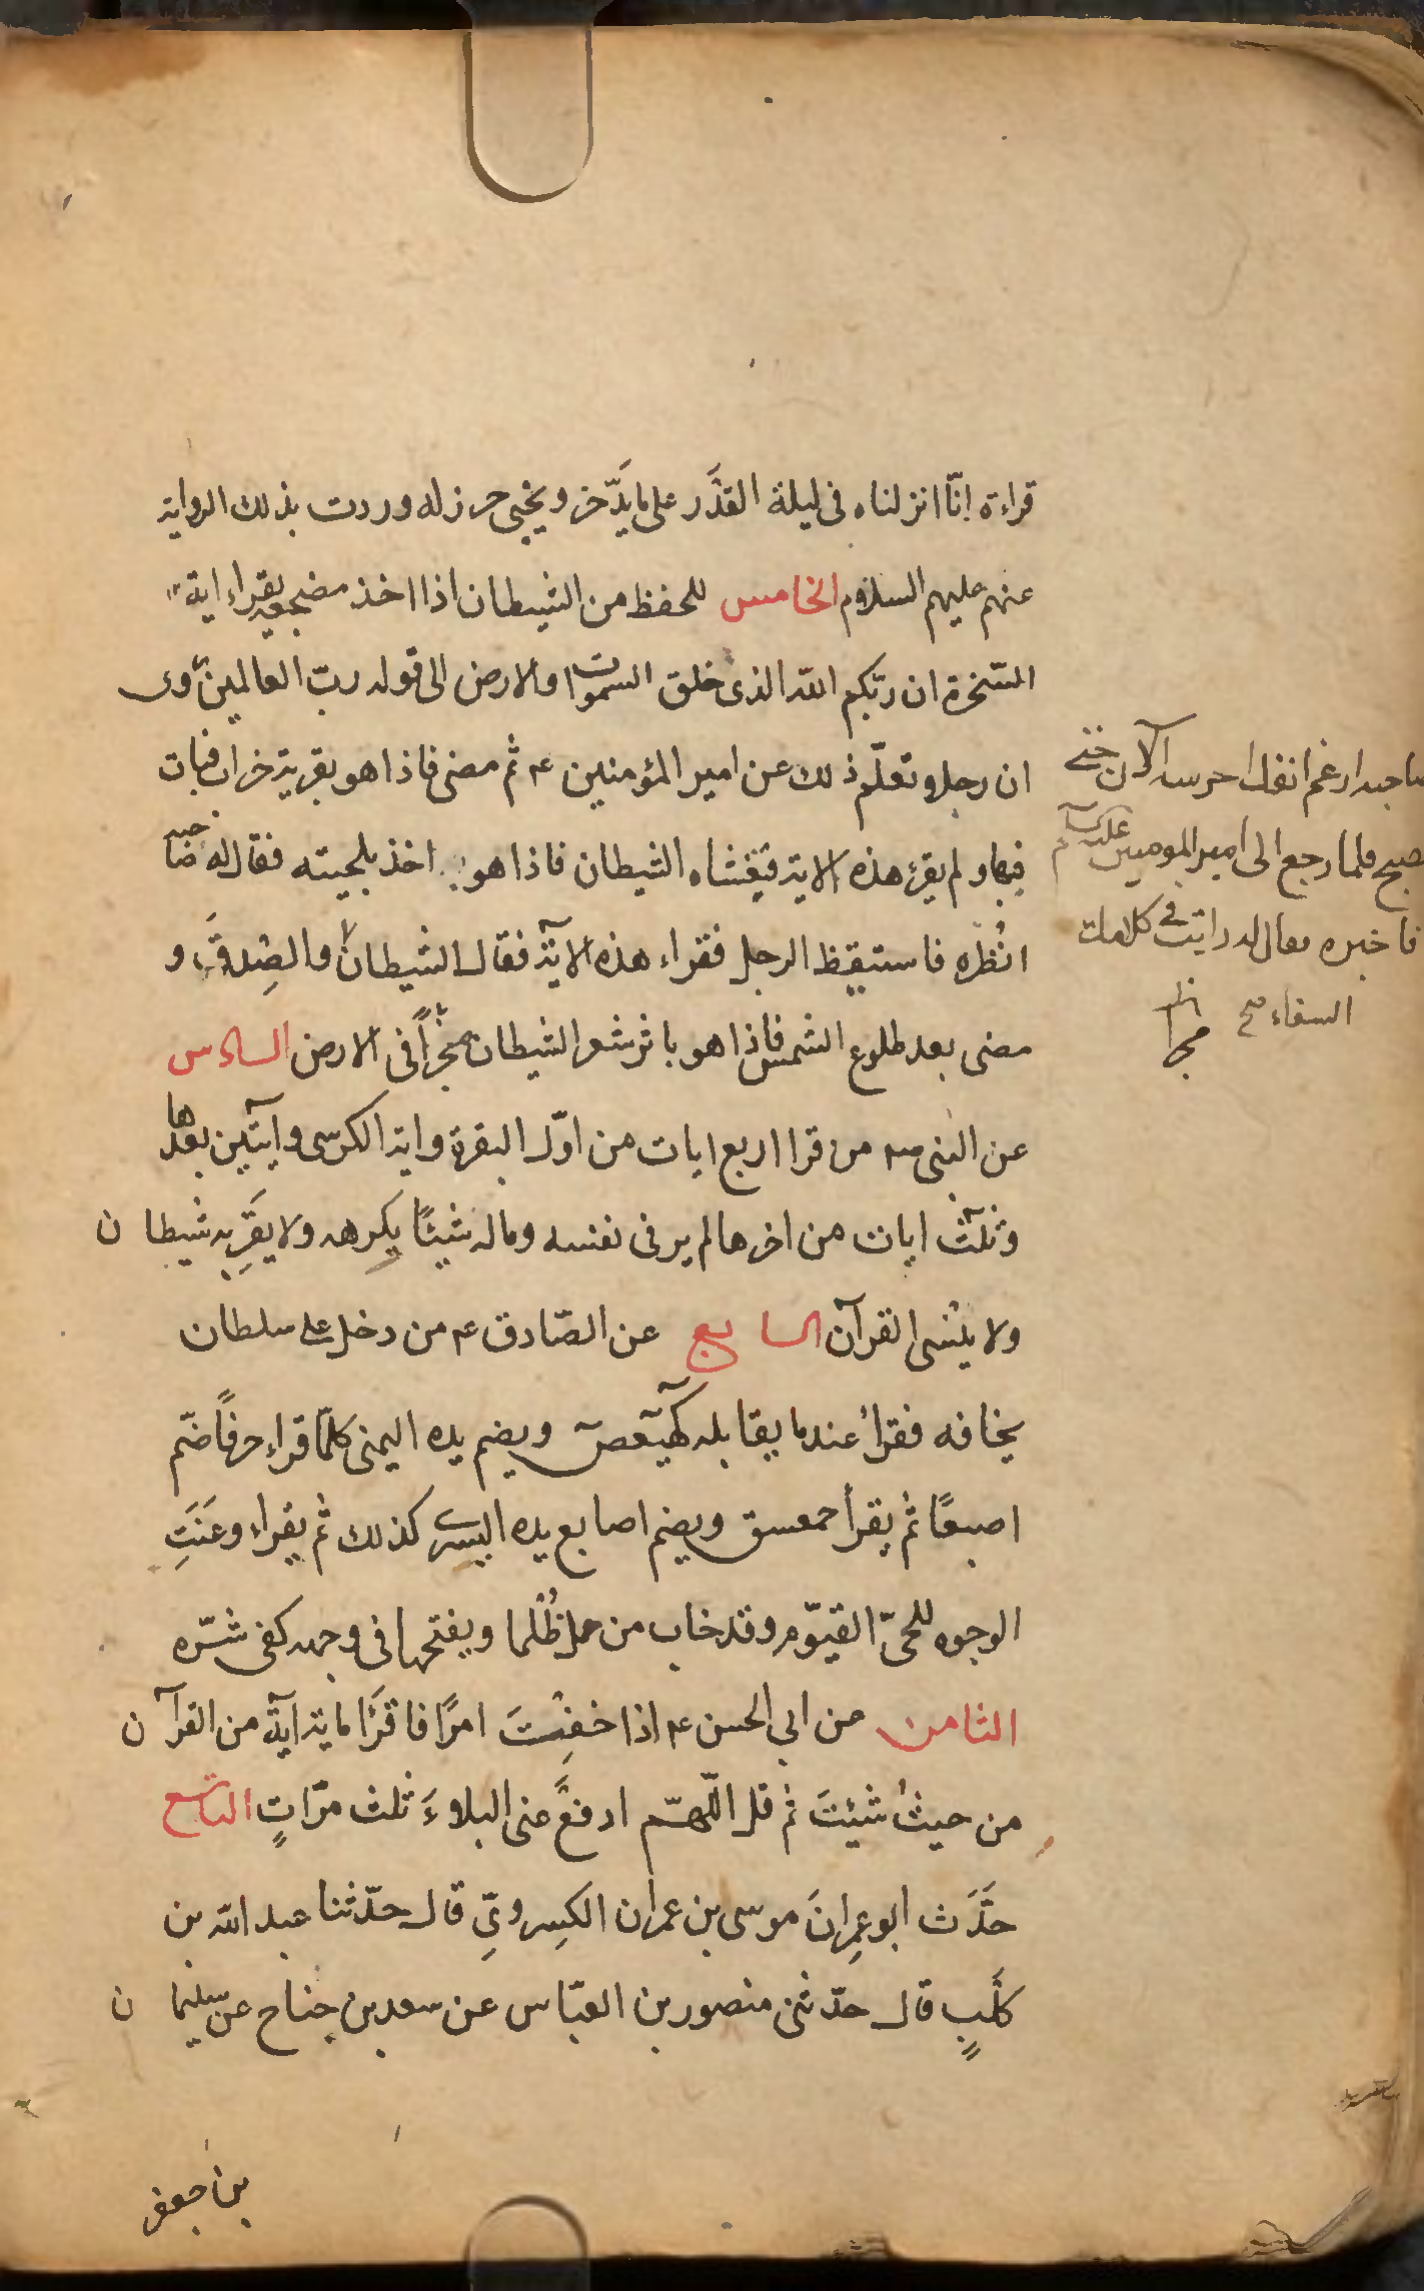 قراءة انّا انزلناه فى ليلة القدَر على ما يدَّخر ويخبى حرز له وردت بذلك الرواية
عنهم عليهم السلام الخامس للحفظ من الشيطان اذا اخذ مضجعه يقراء اية
السّخرة ان ربّكم اللّه الذى خلق السموات والارض الى قوله ربّ العالمين روى
ان رجلا تعلّم ذلك عن امير المؤمنين ع ثم مضى فاذا هو بقرية خراب فبات
فيها ولم يقرء هذه الاية فتغشاه الشيطان فاذا هو اخذ بلحيته فقال له صاحبه
انْظره فاستيقظ الرجل فقراء هذه الآية فقال الشيطان والصِدق و
مضى بعد طلوع الشمس فاذا هو باثر شعر الشيطان منجرّاً فى الارض السادس
عن النبى صه من قرا اربع ايات من اوّل البقرة واية الكرسى وآيتين بعدها
وثلث ايات من اخرها لم ير فى نفسه وماله شيئًا يكرهه ولا يقرَبه شيطان
ولا ينسى القرآن السابع عن الصّادق ع من دخل على سلطان
يخافه فقرأ عند ما يقابله كهيعص ويضم يده اليمنى كلّما قراء حرفًا ضّم
اصبعًا ثم يقرأ حمعسق ويضم اصابع يده اليسرى كذلك ثم يقراء وعَنَتِ
الوجوه للحىّ القيّوم وقد خاب من حمل ظُلما ويفتحها فى وجهه كفى شّره
الثامن عن ابى الحسن ع اذا خفِتَ امرًا فاقرَأ ماية آية من القرآن
من حيثُ شيئتَ ثم قل اللّهّم ادفع عنى البلاءَ ثلث مرّاتٍ التاسع
حَدَّث ابو عِمرانَ موسى بن عمران الكِسرويّ قال حدّثنا عبد اللّه بن
كلَبٍ قال حدّثنى منصور بن العبّاس عن سعد بن جناح عن سليمان
بن جعفر
صاحبه ارغم انفك احرسه الآن حتى
يصبح فلما رجع الى امير المومنين عليه السلم
فاخبره فقال له رايت فى كلامك
الشفاء صح